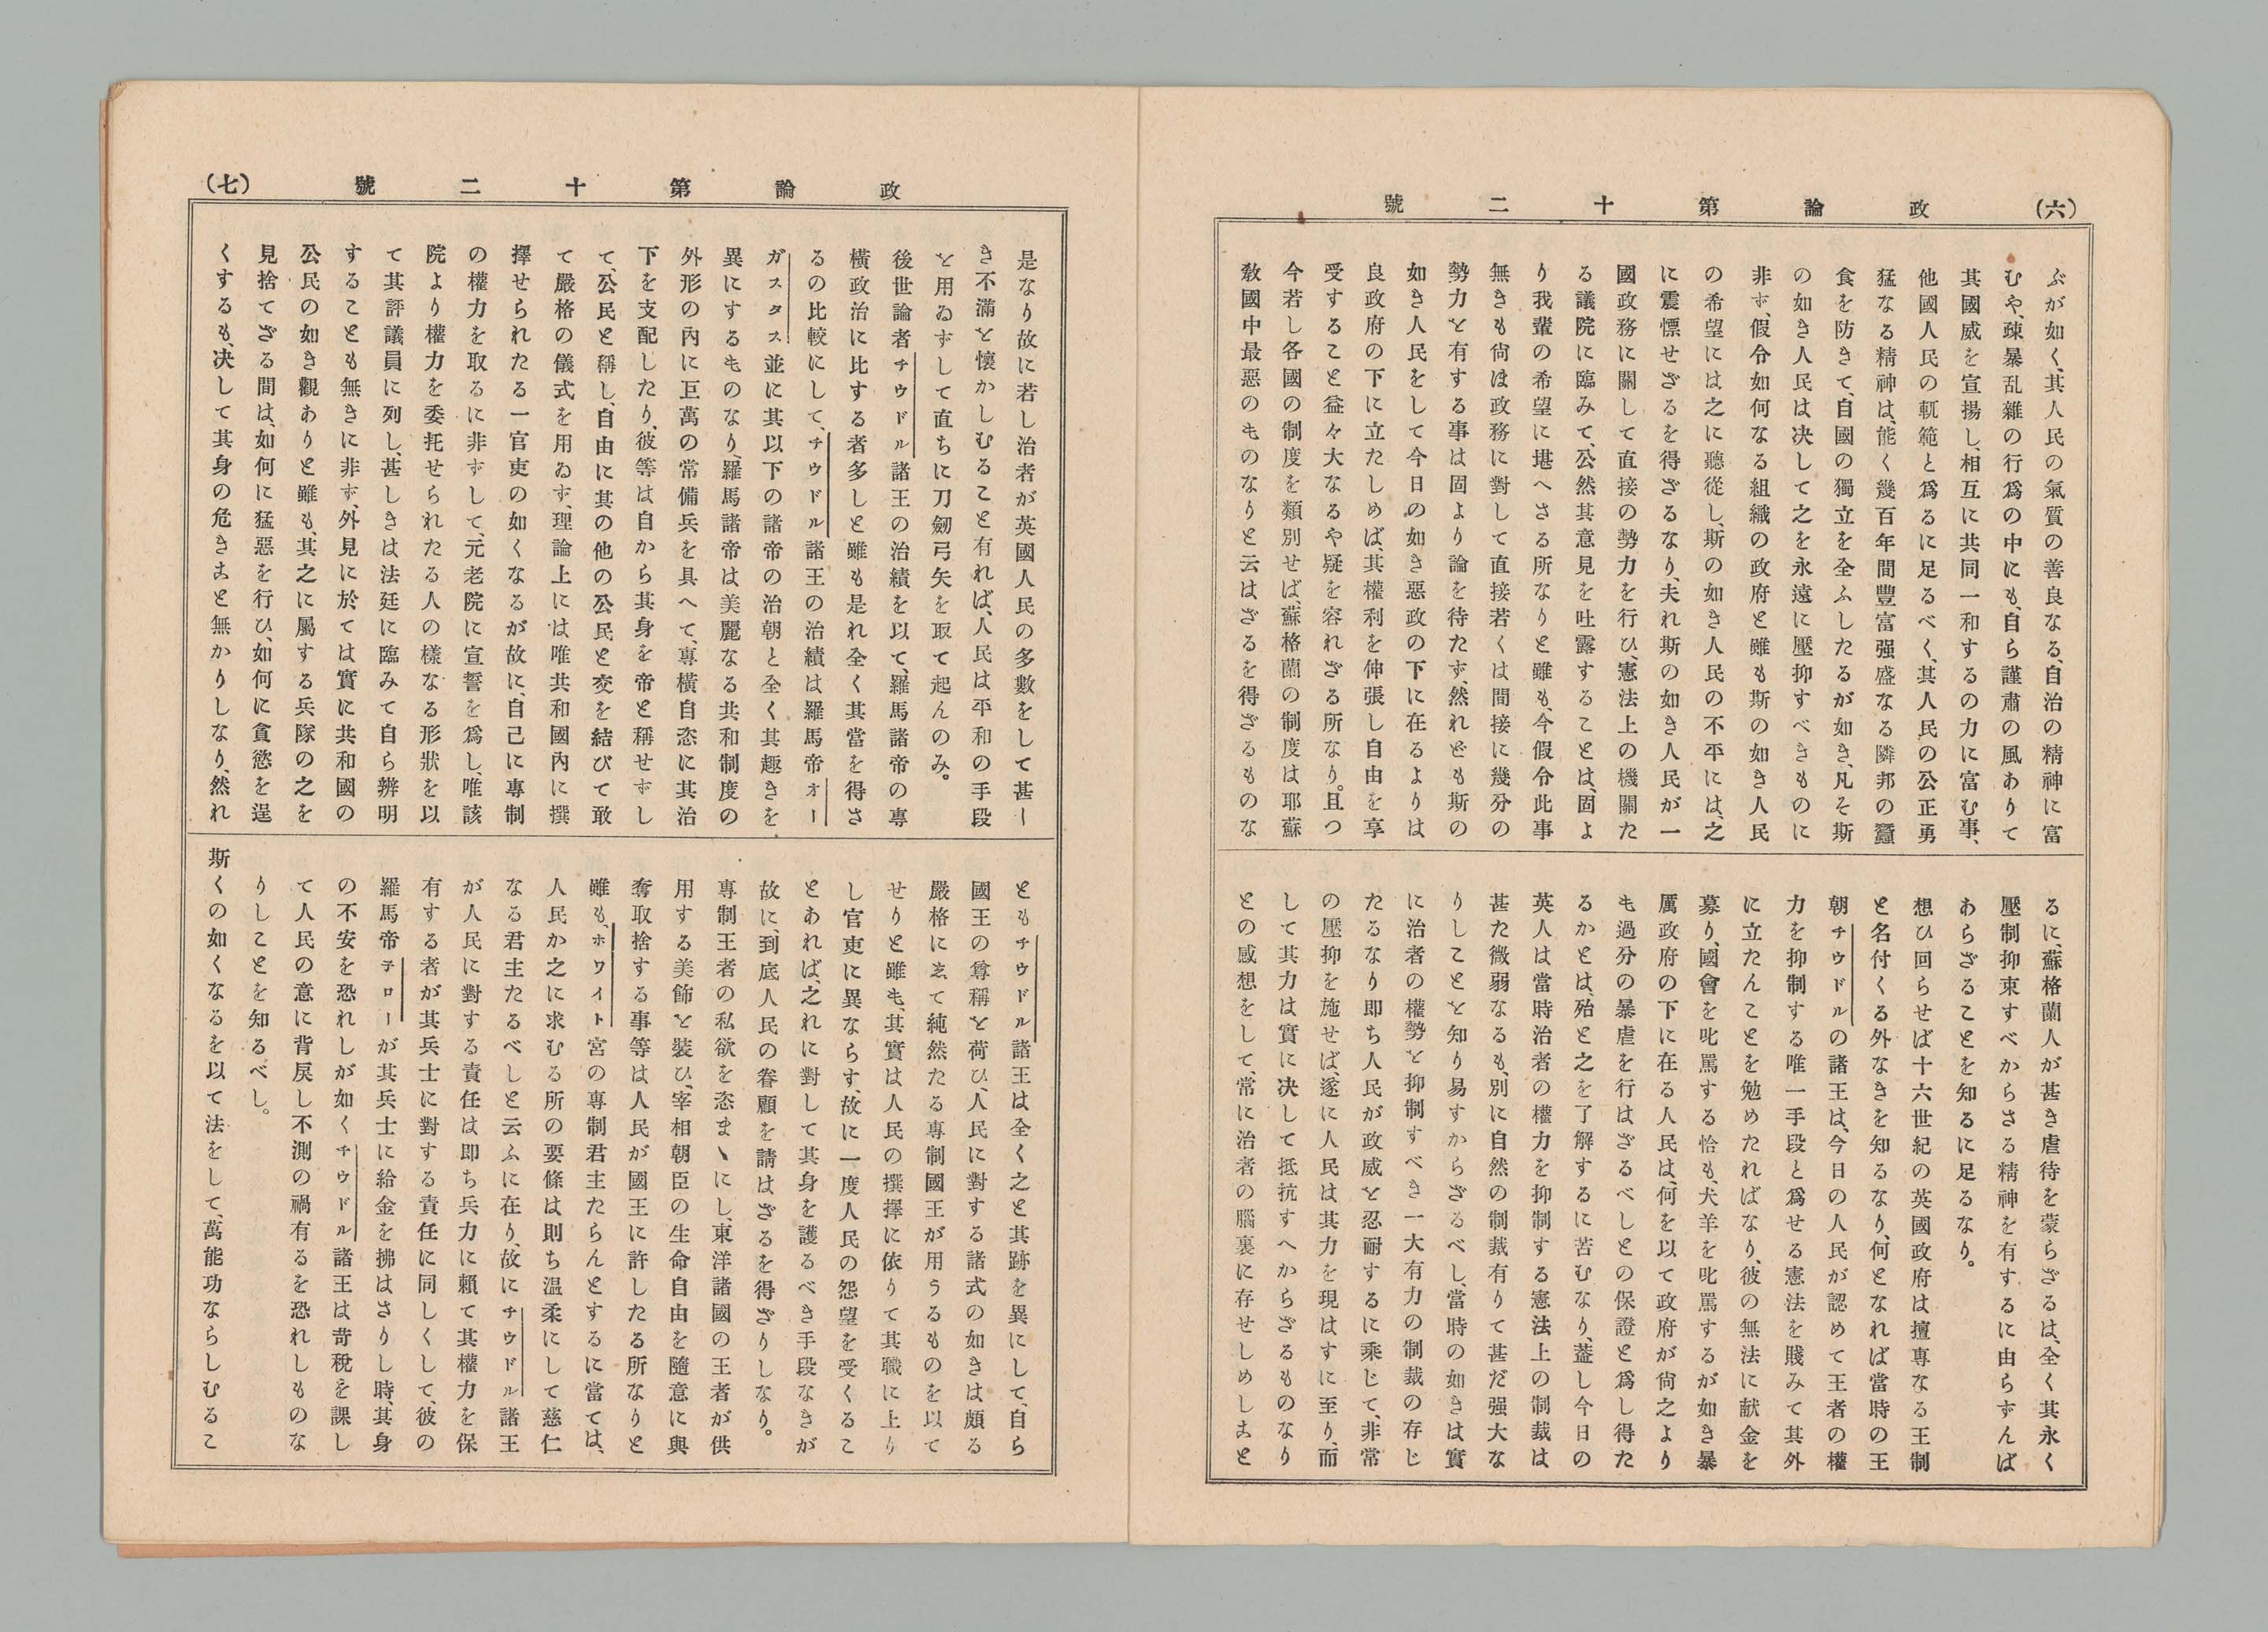 (六) 政論第十二號
ぶが如く、其人民の氣質の善良なる、自治の精神に富
むや、疎暴乱雜の行爲の中にも、自ら謹肅の風ありて
其國威を宣揚し、相互に共同一和するの力に富む事、
他國人民の軌範と爲るに足るべく、其人民の公正勇
猛なる精神は、能く幾百年間豐富强盛なる隣邦の蠶
食を防きて、自國の獨立を全ふしたるが如き、凡そ斯
の如き人民は决して之を永遠に壓抑すべきものに
非ず、假令如何なる組織の政府と雖も斯の如き人民
の希望には之に聽從し、斯の如き人民の不平には、之
に震慄せざるを得ざるなり、夫れ斯の如き人民が一
國政務に關して直接の勢力を行ひ、憲法上の機關た
る議院に臨みて、公然其意見を吐露することは、固よ
り我輩の希望に堪へさる所なりと雖も、今假令此事
無きも尙ほ政務に對して直接若くは間接に幾分の
勢力を有する事は固より論を待たず、然れども斯の
如き人民をして今日の如き惡政の下に在るよりは
良政府の下に立たしめば、其權利を伸張し自由を享
受すること益々大なるや疑を容れざる所なり。且つ
今若し各國の制度を類別せば、蘇格蘭の制度は耶蘇
敎國中最惡のものなりと云はざるを得ざるものな
るに、蘇格蘭人が甚き虐待を蒙らざるは、全く其永く
壓制抑束すべからさる精神を有するに由らずんば
あらざることを知るに足るなり。
想ひ回らせば十六世紀の英國政府は擅專なる王制
と名付くる外なきを知るなり、何となれば當時の王
朝チウドルの諸王は、今日の人民が認めて王者の權
力を抑制する唯一手段と爲せる憲法を賤みて其外
に立たんことを勉めたればなり、彼の無法に献金を
募り、國會を叱罵する恰も、犬羊を叱罵するが如き暴
厲政府の下に在る人民は、何を以て政府が尙之より
も過分の暴虐を行はざるべしとの保證と爲し得た
るかとは、殆と之を了解するに苦むなり、蓋し今日の
英人は當時治者の權力を抑制する憲法上の制裁は
甚た微弱なるも、別に自然の制裁有りて甚だ强大な
りしことを知り易すからざるべし、當時の如きは實
に治者の權勢を抑制すべき一大有力の制裁の存じ
たるなり即ち人民が政威を忍耐するに乘じて、非常
の壓抑を施せば、遂に人民は其力を現はすに至り、而
して其力は實に决して抵抗すへからざるものなり
との感想をして、常に治者の腦裏に存せしめしまと
(七) 政論第十二號
是なり故に若し治者が英國人民の多數をして甚ー
き不滿を懷かしむること有れば、人民は平和の手段
を用ゐずして直ちに刀劒弓矢を取て起んのみ。
後世論者チウドル諸王の治績を以て、羅馬諸帝の專
橫政治に比する者多しと雖も是れ全く其當を得さ
るの比較にして、チウドル諸王の治績は羅馬帝オー
ガスタス並に其以下の諸帝の治朝と全く其趣きを
異にするものなり、羅馬諸帝は美麗なる共和制度の
外形の內に巨萬の常備兵を具へて、專橫自恣に其治
下を支配したり、彼等は自から其身を帝と稱せずし
て、公民と稱し、自由に其の他の公民と交を結びて敢
て嚴格の儀式を用ゐず、理論上には唯共和國內に撰
擇せられたる一官吏の如くなるが故に、自己に專制
の權力を取るに非ずして、元老院に宣誓を爲し、唯該
院より權力を委托せられたる人の樣なる形狀を以
て其評議員に列し、甚しきは法廷に臨みて自ら辨明
することも無きに非ず、外見に於ては實に共和國の
公民の如き觀ありと雖も、其之に屬する兵隊の之を
見捨てざる間は、如何に猛惡を行ひ、如何に貪慾を逞
くするも、决して其身の危きまと無かりしなり、然れ
ともチウドル諸王は全く之と其跡を異にして、自ら
國王の尊稱を荷ひ、人民に對する諸式の如きは頗る
嚴格にゑて純然たる專制國王が用うるものを以て
せりと雖も、其實は人民の撰擇に依りて其職に上り
し官吏に異ならす、故に一度人民の怨望を受くるこ
とあれば、之れに對して其身を護るべき手段なきが
故に、到底人民の眷顧を請はざるを得ざりしなり。
專制王者の私欲を恣まゝにし、東洋諸國の王者が供
用する美飾を裝ひ、宰相朝臣の生命自由を隨意に與
奪取捨する事等は人民が國王に許したる所なりと
雖も、ホワイト宮の專制君主たらんとするに當ては、
人民か之に求むる所の要條は則ち温柔にして慈仁
なる君主たるべしと云ふに在り、故にチウドル諸王
が人民に對する責任は即ち兵力に賴て其權力を保
有する者が其兵士に對する責任に同しくして、彼の
羅馬帝子ローが其兵士に給金を拂はさりし時、其身
の不安を恐れしが如くチウドル諸王は苛稅を課し
て人民の意に背戾し不測の禍有るを恐れしものな
りしことを知るべし。
斯くの如くなるを以て法をして、萬能功ならしむるこ